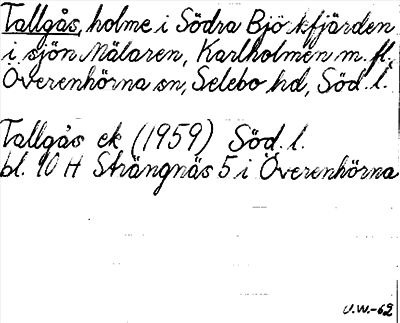 Tallgås, holme i Södra Björkfjärden
i sjön Mälaren, Karlholmen m. fl.,
Överenhörna sn, Selebo hd, Söd. l.
Tallgås ek (1959) Söd. l.
bl. 10 H Strängnäs 5 i Överenhörna
U.W.-62